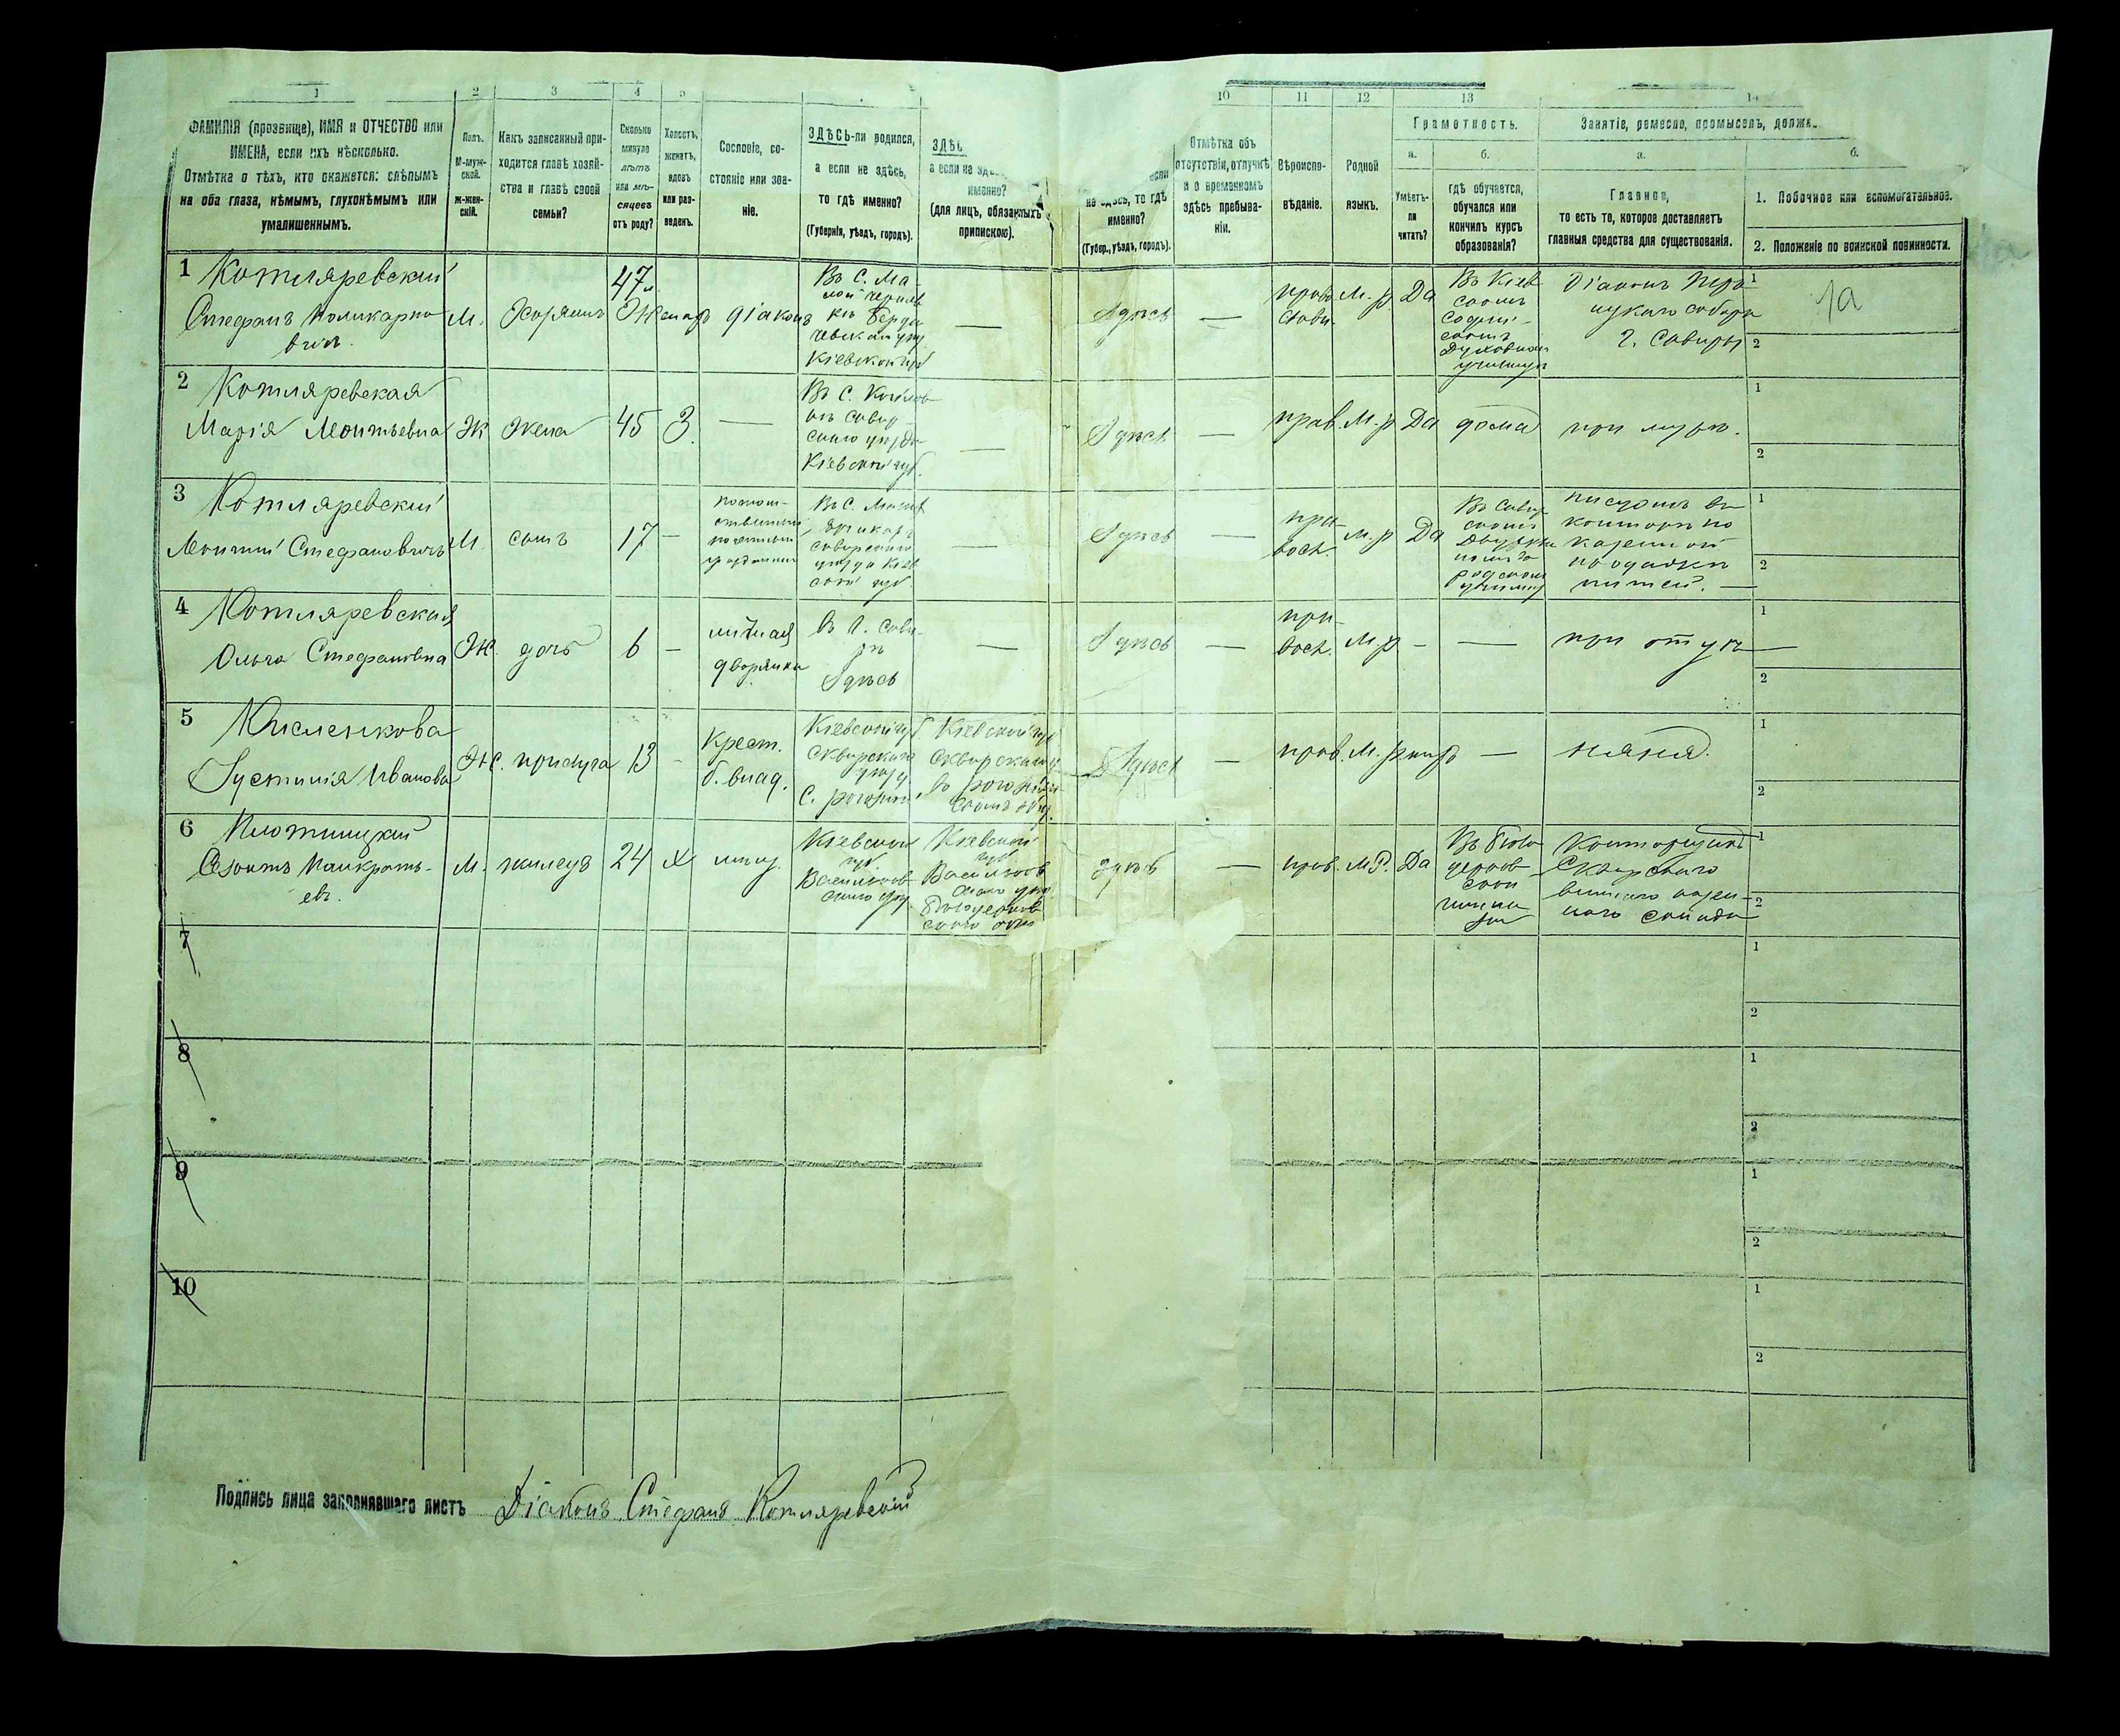 1 2 3 4 5 10 11 12 13 14
ФАМИЛІЯ (прозвище), ИМЯ и ОТЧЕСТВО или
ИМЕНА, если ихъ нѣсколько.
Отмѣтка о тѣхъ, кто окажется: слѣпымъ
на оба глаза, нѣмымъ, глухонѣмымъ или
умалишеннымъ.
Полъ.
М-муж-
ской.
ж-жен-
скій.
Какъ записанный при-
ходится главѣ хозяй-
ства и главѣ своей
семьи?
Сколько
минуло
лѣтъ
или мѣ-
сяцевъ
отъ роду?
Холостъ,
женатъ,
вдовъ
или раз-
веденъ.
Сословіе, со-
стояніе или зва-
ніе.
ЗДѢСЬ-ли родился,
а если не здѣсь,
то гдѣ именно?
(Губернія, уѣздъ, городъ).
ЗДѢ
а если не
именно?
(для лицъ, обязанныхъ
припискою).
если
не здѣсь, то гдѣ
именно?
(Губер., уѣздъ, городъ).
Отмѣтка объ
отсутствіи, отлучкѣ
и о временномъ
здѣсь пребыва-
ніи.
Вѣроиспо-
вѣданіе.
Родной
языкъ.
Грамотность.
а.
Умѣетъ-
ли
читать?
б.
гдѣ обучается,
обучался или
кончилъ курсъ
образованія?
Занятіе, ремесло, промыселъ, должн
а.
Главное,
то есть то, которое доставляетъ
главныя средства для существованія.
б.
1. Побочное или вспомогательное.
2. Положеніе по воинской повинности.
1 Котляревский
Стефанъ Поликарпо
вич
М.
Хозяинъ
47
Женатъ
діаконъ
Въ С. Ма-
лой
Берди
чевскаго
Кіевской губ
—
Здѣсь
—
право
слав.
М. р
Да
Въ Кіев
скомъ
Софій-
скомъ
Духовном
училищѣ
Діаконъ
собора
г. Сквиры
1
2
1а
2 Котляревская
Марія Леонтьевна
Ж
жена
45
З.
—
Въ С.
Сквир
скаго уѣзда
Кіевской губ.
—
Здѣсь
—
прав.
М. р
Да
дома
при мужѣ.
1
2
3 Котляревский
Леонтий Стефановичъ
М.
сынъ
17
—
потом-
ственный
почетный
гражданинъ
Въ С.
Сквирскаго
уѣзда Кіев
ской губ
—
Здѣсь
—
пра-
восл.
м. р
Да
Въ Сквир
скомъ
го
родском
училищѣ
писцомъ въ
конторѣ по
казенной
продажѣ
питей. —
1
2
4 Котляревская
Ольга Стефановна
Ж.
дочь
6
—
личная
дворянка
В г. Скви-
рѣ
Здѣсь
—
Здѣсь
—
пра-
восл.
М р
-
—
при отцѣ
1
2
5 Кисленкова
Іустинія Иванова
Ж.
прислуга
13
-
Крест.
б. влад.
Кіевской губ
Сквирскаго
уѣзд
С.
Кіевской губ
Сквирскаго у
Здѣсь
—
прав.
М. р
—
няня.
1
2
6 Плотницкий
Панкратъ-
евъ.
М.
жилецъ
24
х
мѣщ.
Кіевской
губ
Васильков
скаго уѣз.
Кіевской
губ
Васильков
скаго уѣз
Бѣлоцерков
скаго
здѣсь
—
прав.
М. Р.
Да
Въ Бѣло
церков
ской
гимна
зіи
Конторщикъ
Сквирскаго
виннаго казен-
наго склада
1
2
7
1
2
8
1
2
9
1
2
10
1
2
Подпись лица заполнявшаго листъ Діаконъ Стефанъ Котляревский